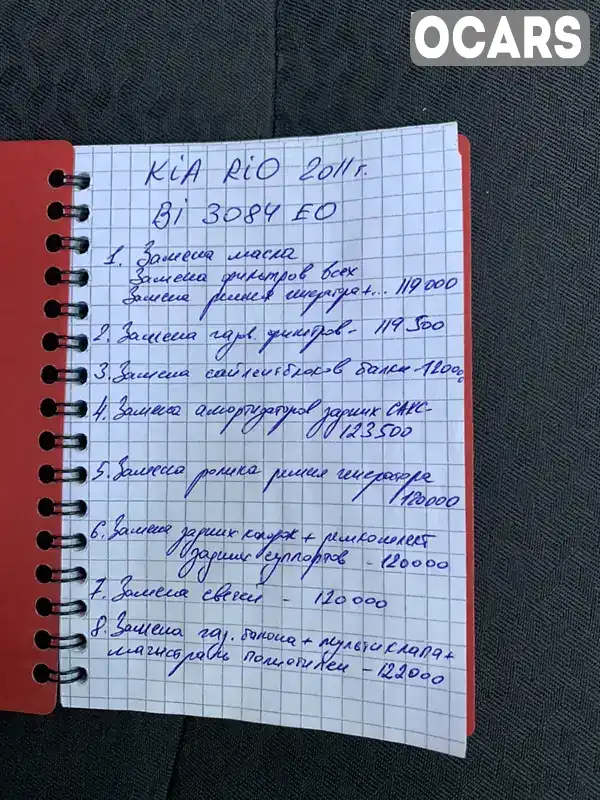 OCARS
KIA RIO 2011г.
Bi 3084 EO
1. Замена масла
Замена фильтров всех
Замена ремня генератра+... 119000
2. Замена газв. фильтров - 119500
3. Замена сайлентблоков балки - 12000
4. Замена амортизаторов задних САКС-
123500
5. Замена ролика ремня генератора
120000
6. Замена задних колодок + ремкомплект
задних суппортов - 120000
7. Замена свечей - 120000
8. Замена газ. балона + мультиклапа+
магистраль - 122000